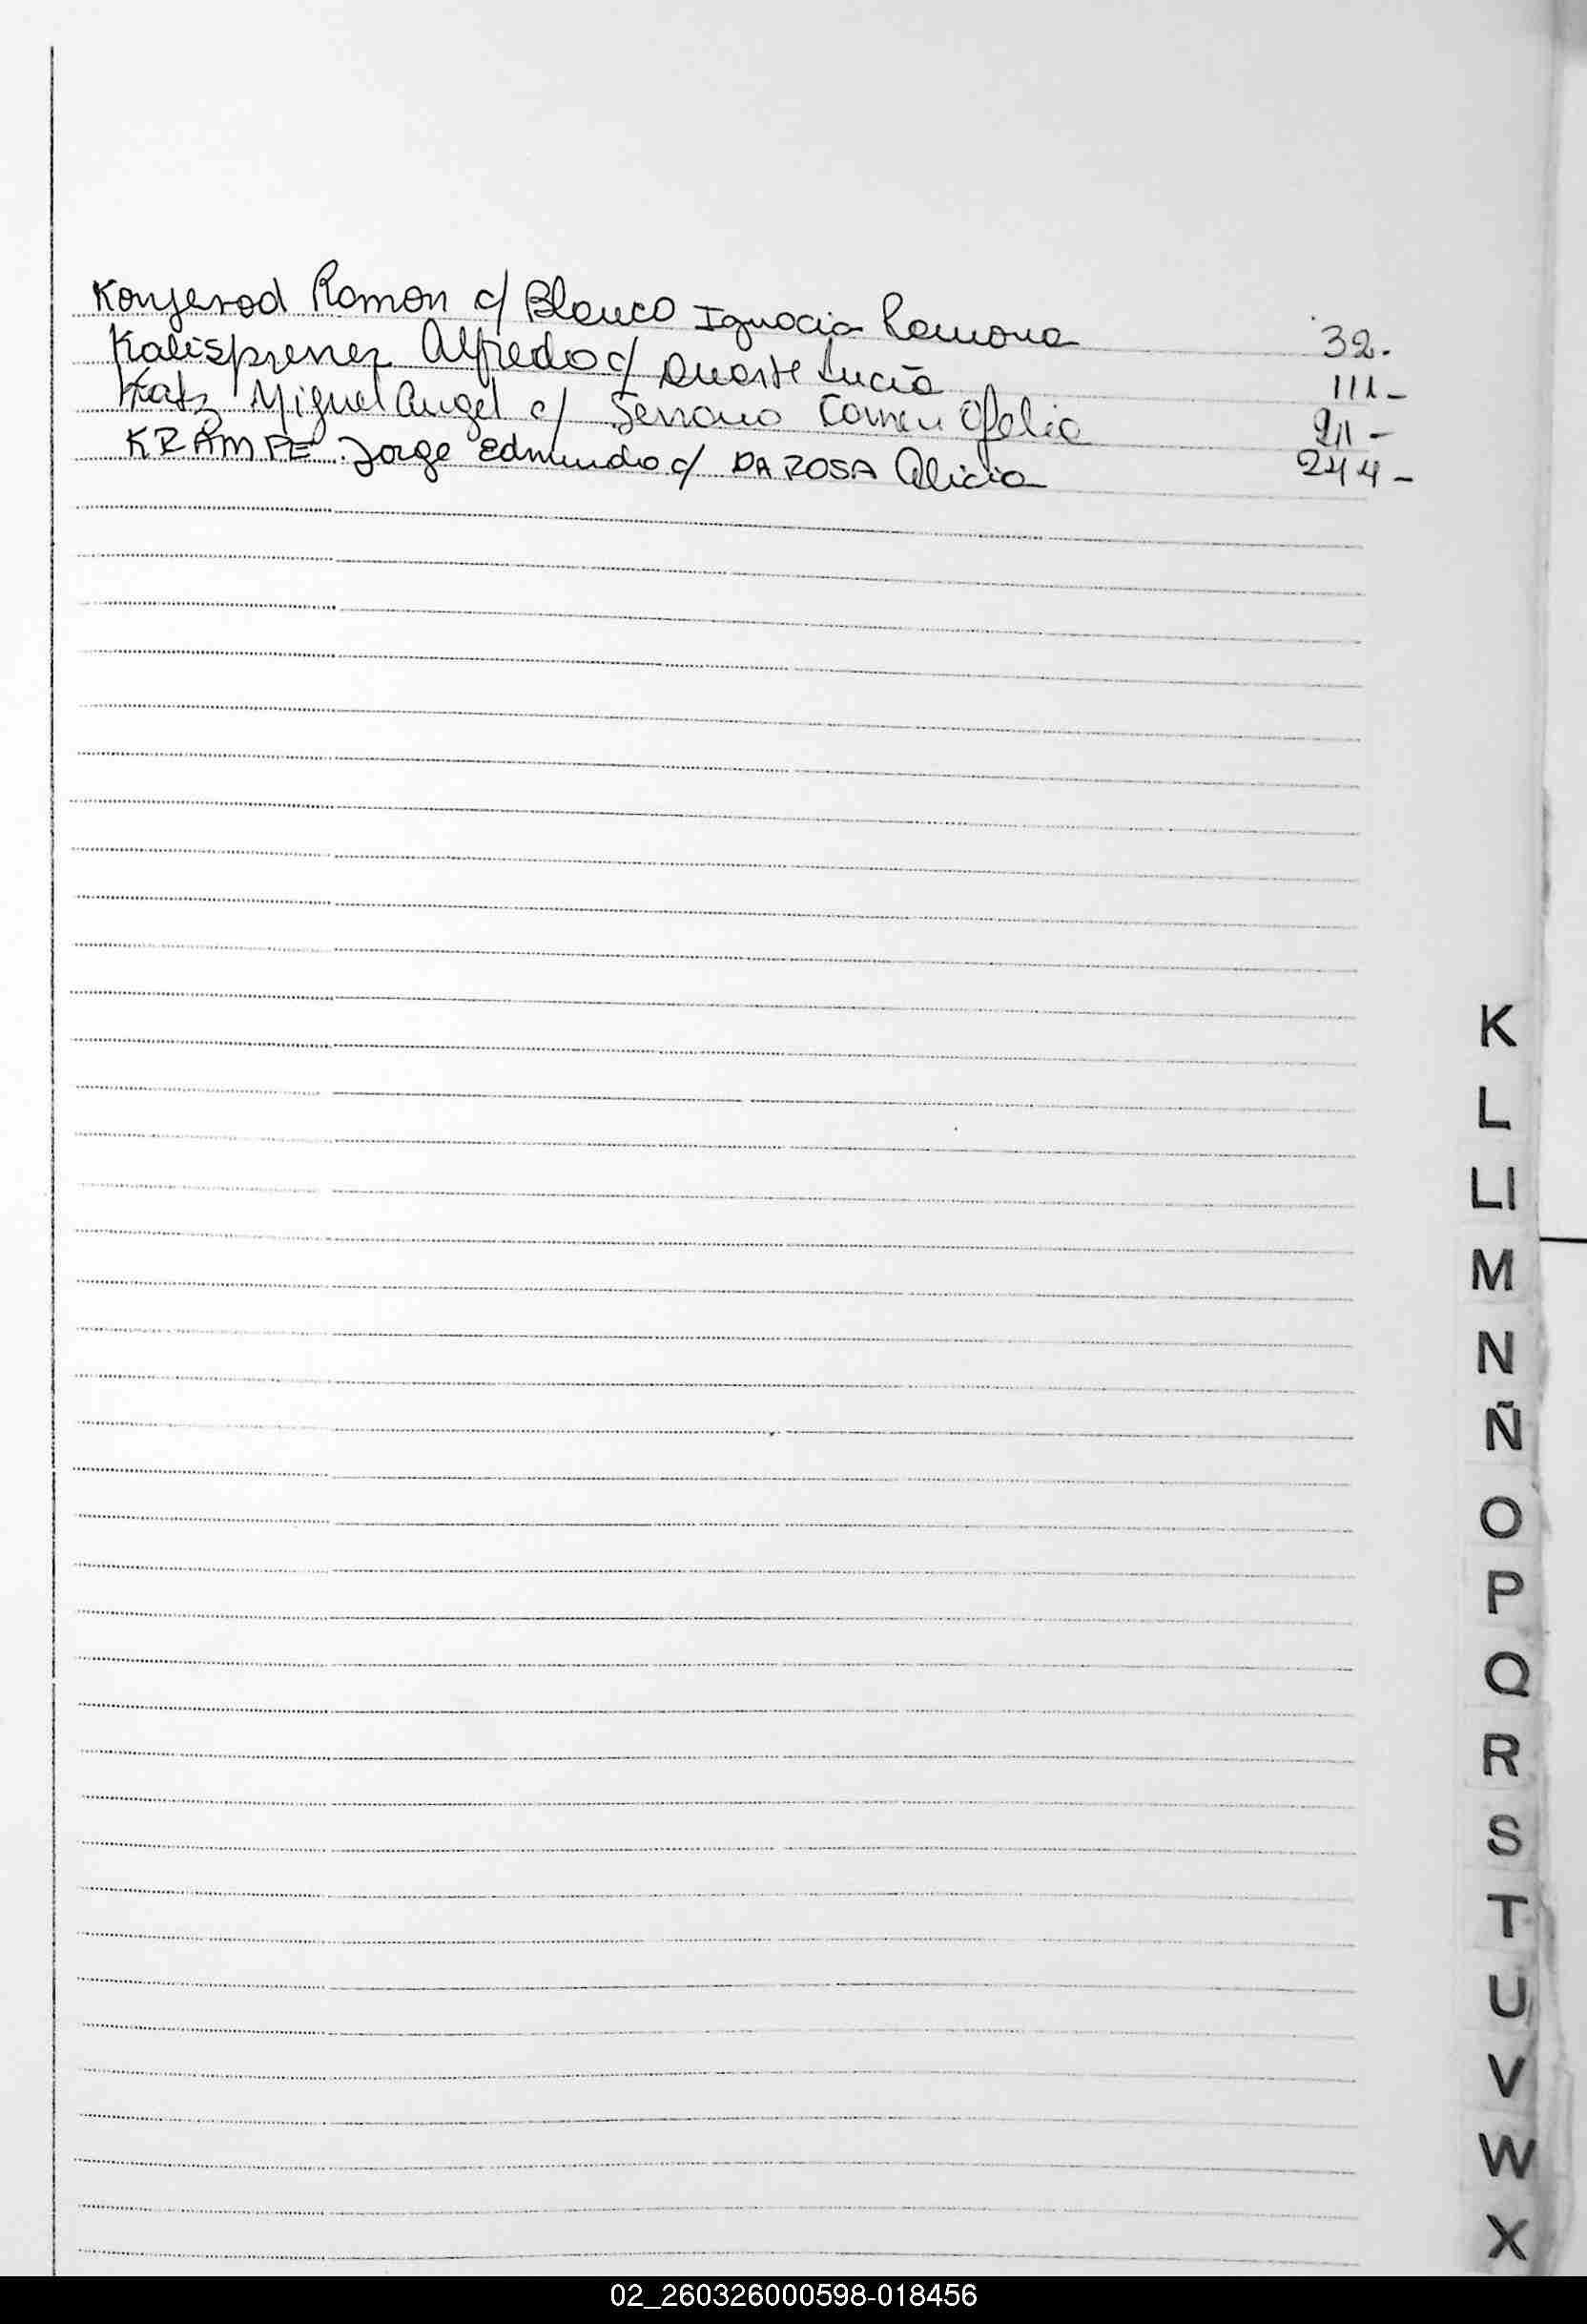 Konjerod Ramon c/ Blanco Ignacia Ramona 32.
Kalisprener Alfredo c/ Duarte Lucia 111-
Katz Miguel Angel c/ Serrano Carmen Ofelia 211-
KRAMPE Jorge Edmundo c/ DA ROSA Alicia 244-
K
L
Ll
M
N
Ñ
O
P
Q
R
S
T
U
V
W
X
02_260326000598-018456